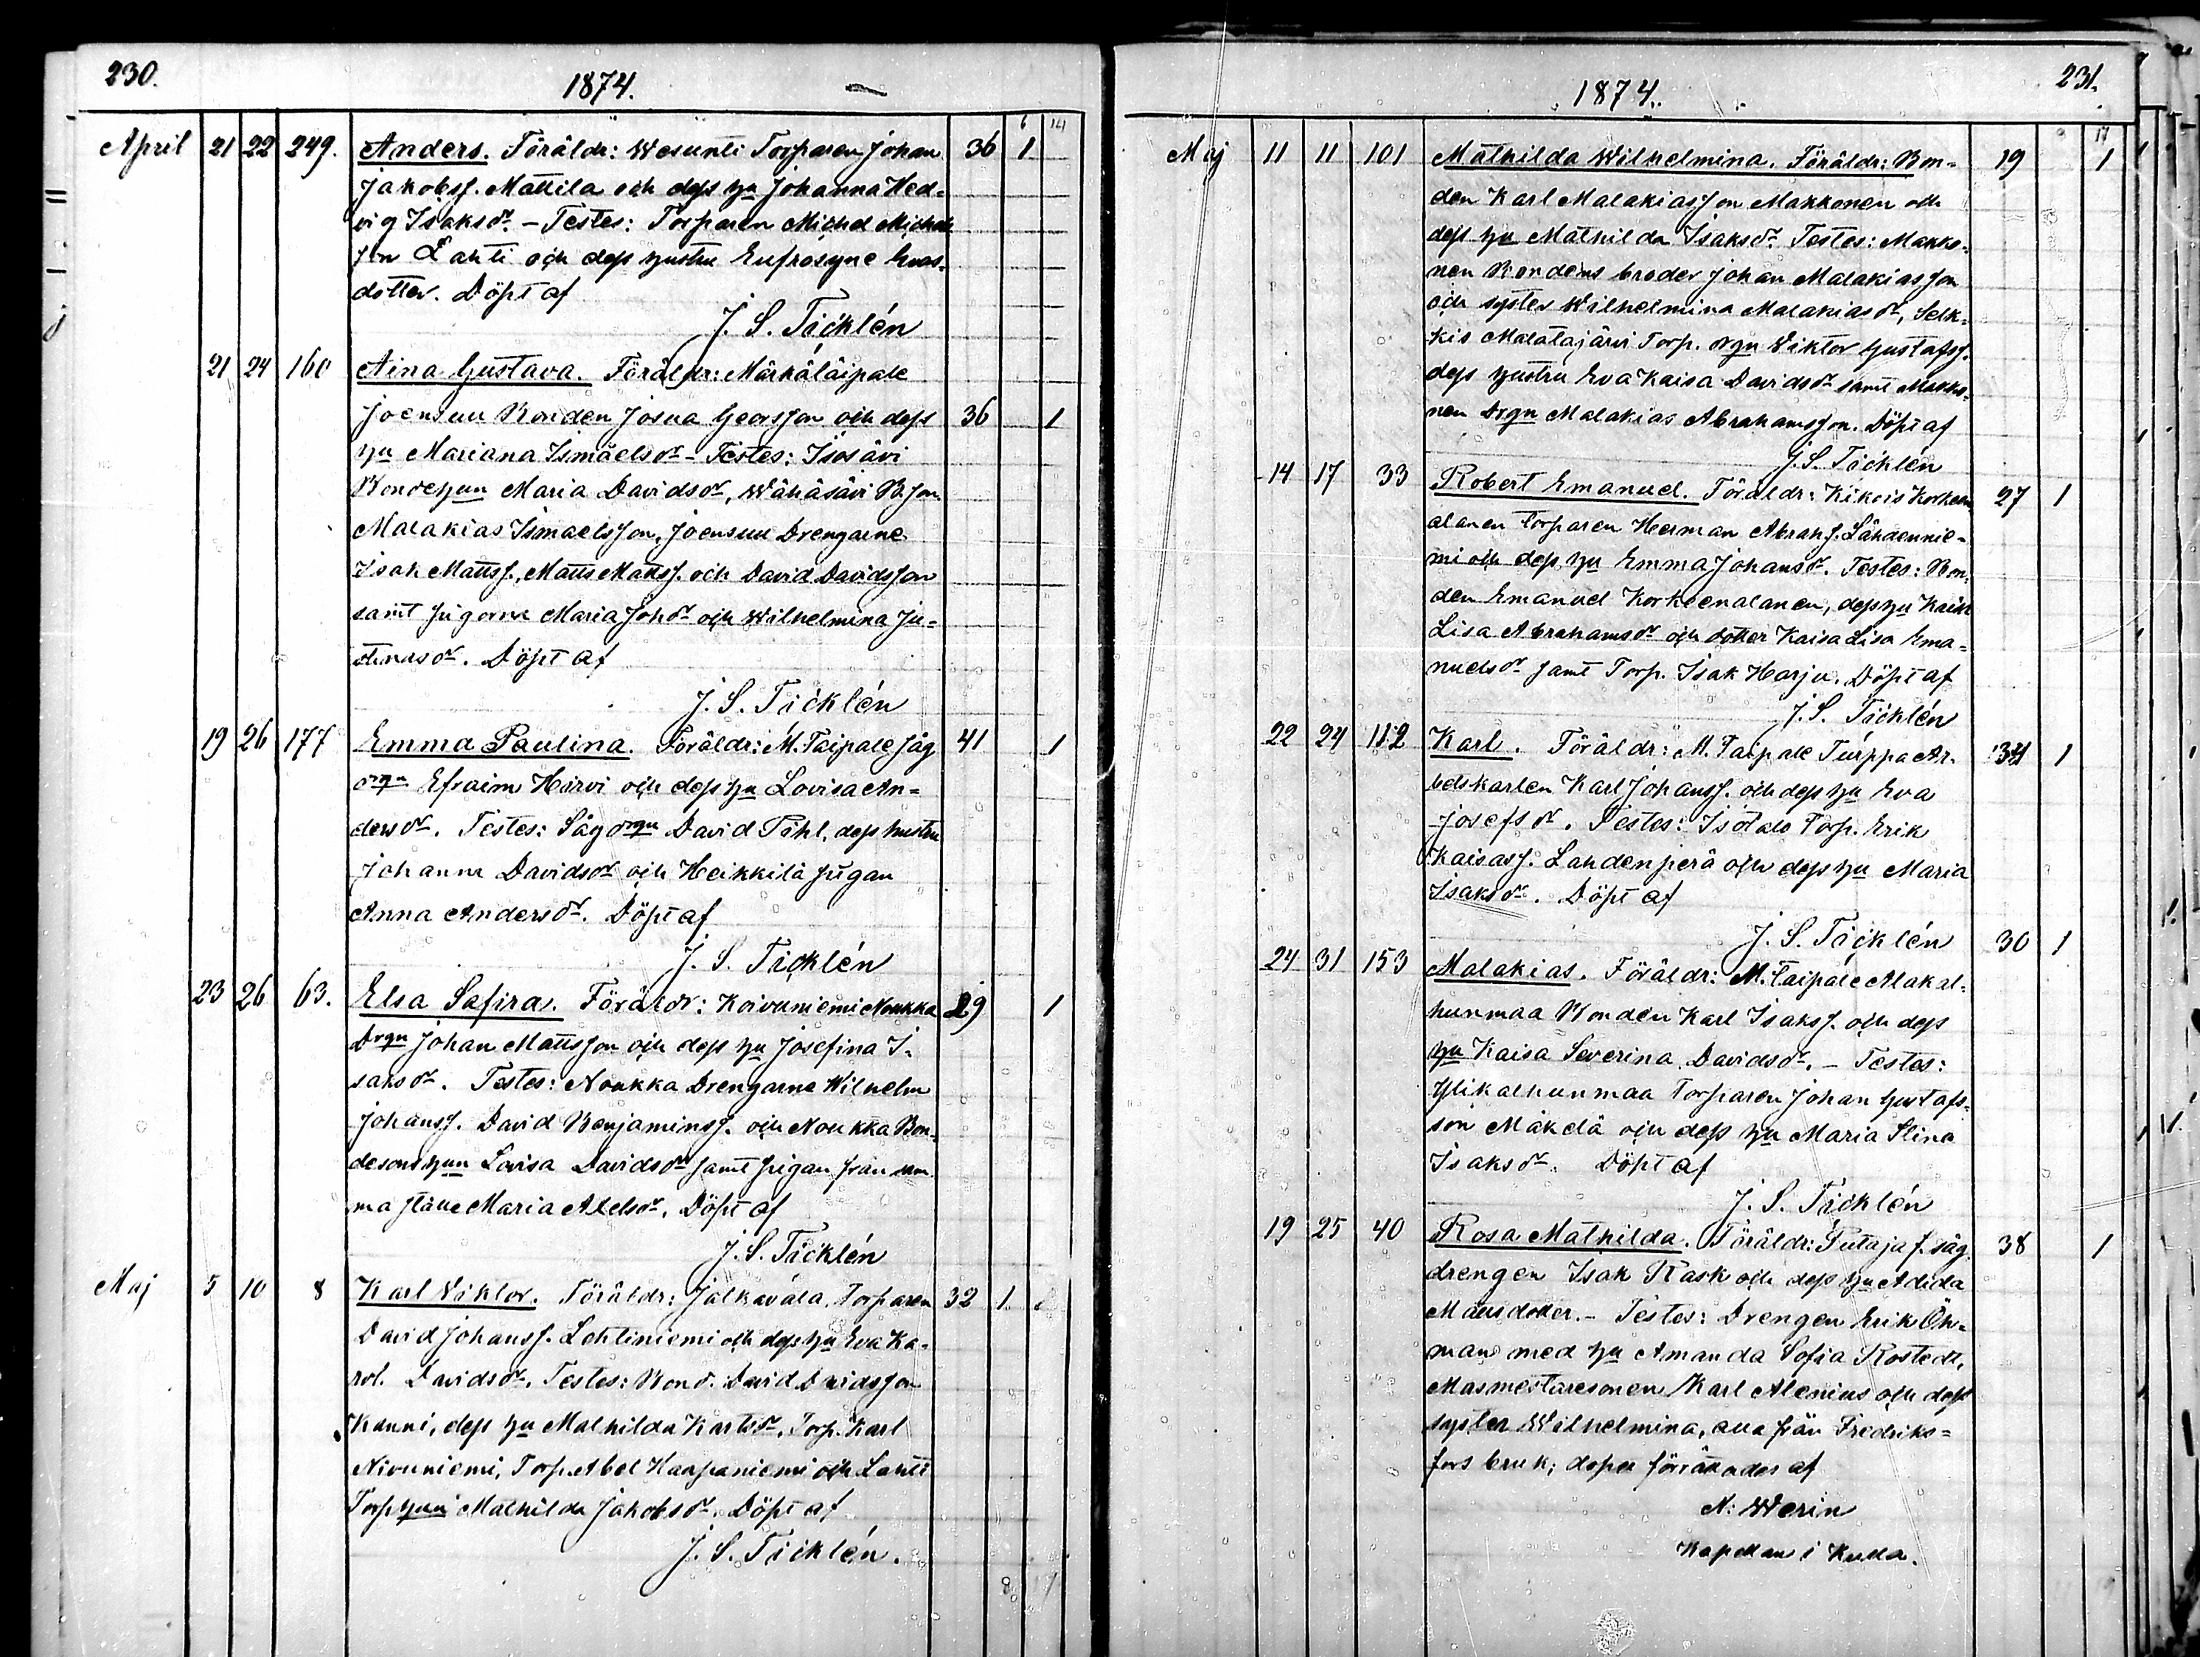 230.
1874.
6 14
April 21 22 249. Anders. Föräldr: Wesunti Torparen Johan 36 1
Jakobsf. Mattila och dess hu Johanna Hed-
vig Isaksdr. - Testes: Torparen Michel Michels
son Lahti och dess hustru Eufrosyne Evas-
dotter. Döpt af
J. S. Ticklén
21 24 160 Aina Gustava. Föräldr: Märkäläipale
Joensuu Bonden Josua Georsson och dess 36 1
hu Mariana Ismaelsdr - Testes: Isosävi
Bondehun Maria Davidsdr, Wähäsävi B. son
Malakias Ismaelsson, Joensuu Drengarne
Isak Mattsf., Matts Mattsf. och David Davidsson
samt pigorna Maria Johdr och Wilhelmina Ju-
stinasdr. Döpt af
J. S. Ticklén
19 26 177 Emma Paulina. Föräldr: M. Taipale såg 41 1
drgn Efraim Hirvi och dess hu Lovisa An-
dersdr. Testes: Sågdrgn David Pihl, dess hustru
Johanna Davidsdr och Heikkilä pigan
Anna Andersdr. Döpt af
J. S. Ticklén
23 26 63. Elsa Safira. Föräldr: Koivuniemi Noukka 29 1
Drgn Johan Mattsson och dess hu Josefina I-
saksdr. Testes: Noukka Drengarne Wilhelm
Johansf. David Benjaminsf. och Noukka Bon-
desonshun Lovisa Davidsdr samt pigan från sam
ma ställe Maria Axelsdr. Döpt af
J. S. Ticklén
Maj 5 10 8 Karl Viktor. Föräldr: Jalkavala Torparen 32 1
David Johansf. Lehtiniemi och dess hu Eva Ka-
rol. Davidsdr. Testes: Bond. David Davidsson
Kanni, dess hu Mathilda Karlsdr, Torp. Karl
Nivuniemi, Torp. Abel Haapaniemi och Lahti
Torphun Mathilda Jakobsdr. Döpt af
J. S. Ticklén.
8 17
1874.
231.
17
Maj 11 11 101 Mathilda Wilhelmina. Föräldr: Bon- 19 1
den Karl Malakiasson Makkonen och
dess hu Mathilda Isaksdr. Testes: Makko-
nen Bondens broder Johan Malakiasson
och syster Wilhelmina Malakiasdr, Selk-
kis Malatajärvi Torp. drgn Wiktor Gustafsf.
dess hustru Eva Kaisa Davidsdr samt Makko-
nen Drgn Malakias Abrahamsson. Döpt af
J. S. Ticklén
14 17 33 Robert Emanuel. Föräldr: Kikois Korkeen 27 1
alanen Torparen Herman Abrahf. Lähdennie-
mi och dess hu Emma Johansdr. Testes: Bon-
den Emanuel Korkeenalanen, dess hu Kaisa
Lisa Abrahamsdr och dotter Kaisa Lisa Ema-
nuelsdr samt Torp. Isak Harju. Döpt af
J. S. Ticklén
22 24 112 Karl. Föräldr: M. Taipale Turppa Ar- 34 1
betskarlen Karl Johansf. och dess hu Eva
Josefsdr. Testes: Isotalo Torp. Erik
Kaisasf. Lahdenperä och dess hu Maria
Isaksdr. Döpt af
J. S. Ticklén
24 31 153 Malakias. Föräldr: M. Taipale Alakal- 30 1
hunmaa Bonden Karl Isaksf. och dess
hu Kaisa Severina Davidsdr. - Testes:
Ylikalhunmaa Torparen Johan Gustafs-
son Mäkelä och dess hu Maria Stina
Isaksdr. Döpt af
J. S. Ticklén
19 25 40 Rosa Mathilda. Föräldr: Putaja f. såg 38 1
drengen Isak Rask och dess hu Adida
Mattsdotter. - Testes: Drengen Erik Öh-
man med hu Amanda Sofia Rostedt,
Masmästaresonen Karl Alenius och dess
syster Wilhelmina, alla från Fredriks-
fors bruk; dopet förrättades af
N: Werin
Kapellan i Kulla.